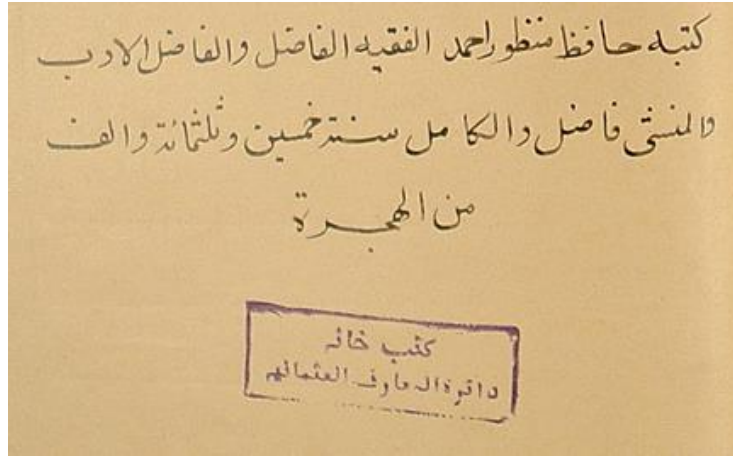 كتبه حافظ منظور احمد الفقيه الفاضل والفاضل الادب
والمنشى فاضل والكامل سنة خمسين وثلثمائة والف
من الهجرة
كتب خانه
دائرة المعارف العثمانيه